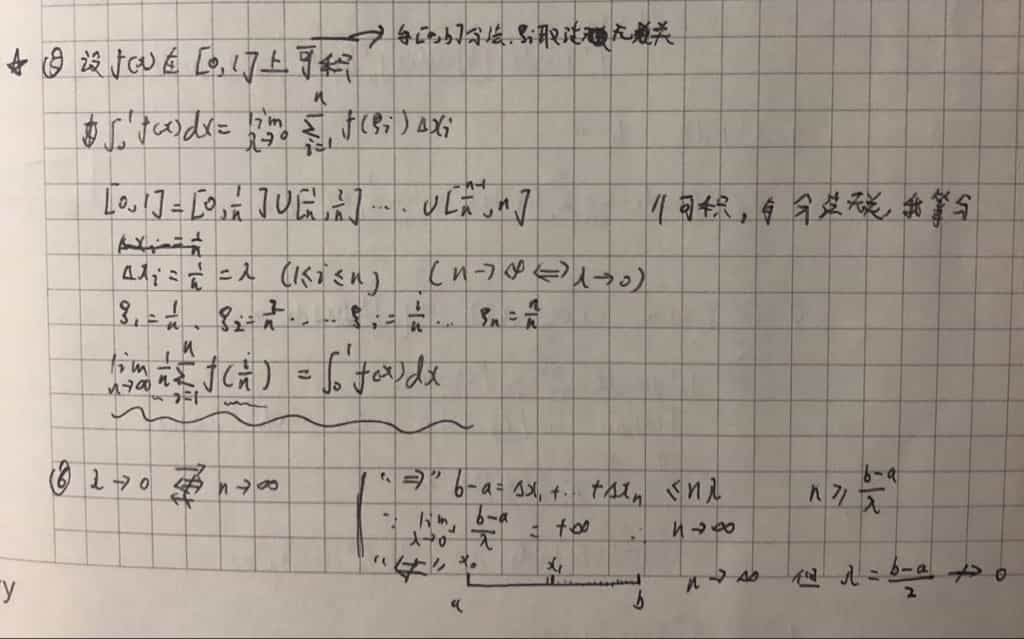 → 与[a,b]分法.ξi取法无关
☆ ⑤ 设f(x)在[0,1]上可积
则∫₀¹f(x)dx=lim λ→0 Σ i=1 n f(ξi)Δxi
[0,1]=[0,1/n]∪[1/n,2/n]....∪[n-1/n,n] // 可积,与分法无关,故等分
Δxi=1/n
Δxi=1/n=λ (1≤i≤n) (n→∞⇔λ→0)
ξ1=1/n、ξ2=2/n.....ξi=i/n...ξn=n/n
lim n→∞ 1/n Σ i=1 n f(i/n) = ∫₀¹f(x)dx
⑥ λ→0 ⇏ n→∞ "⇒" b-a=Δx1+...+Δxn ≤nλ n≥ b-a/λ
∵ lim λ→0 b-a/λ = +∞ ∴ n→∞
"⇍" x0 x1 n→∞ 但 λ=b-a/2 ↛ 0
a b
y